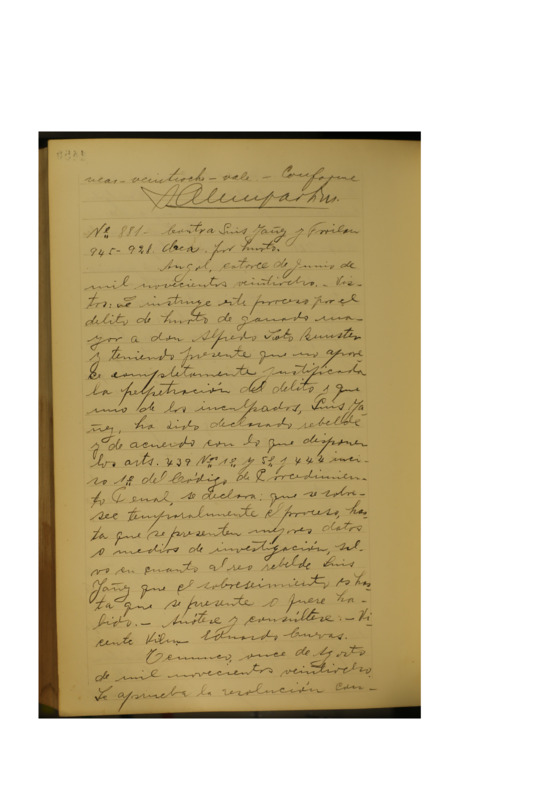 veas - veintiocho - vale. - Conforme
Nº 881 - Contra Luis Yañez y Froilan
945 - 921. por hurto.
Angol, catorce de Junio de
mil novecientos veintiocho. - Vis-
tos: se instruye este proceso por el
delito de hurto de ganado ma-
yor a don Alfredo Soto
y teniendo presente que no apare
ce completamente justificada
la perpetración del delito y que
uno de los inculpados, Luis Ya
ñez, ha sido declarado rebelde
y de acuerdo con lo que disponen
los arts. 439 Nos 1º y 5º y 444 inci-
so 1º del Código de Procedimien-
to Penal, se declara: que se sobre-
see temporalmente el proceso, has-
ta que se presenten mejores datos
o medios de investigación, sal-
vo en cuanto al reo rebelde Luis
Yañez que el sobreseimiento es has-
ta que se presente o fuere ha-
bido. - Anótese y consúltese. - Vi-
cente Eduardo Cuevas.
Temuco, once de Agosto
de mil novecientos veintiocho.
Se aprueba la resolución con-